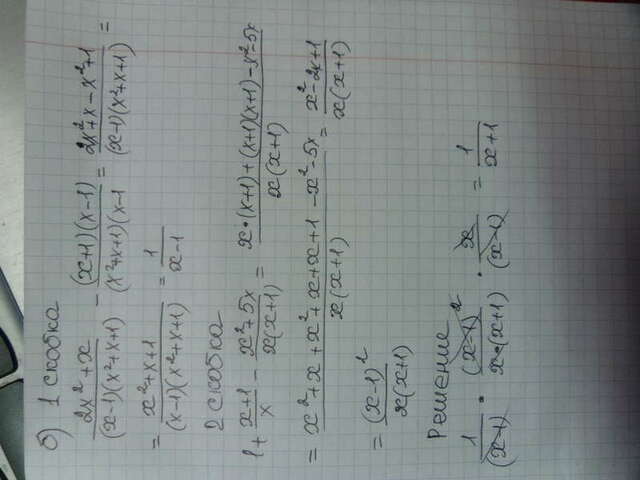 б) 1 скобка
(2x²+x)/((x-1)(x²+x+1)) - ((x+1)(x-1))/((x²+x+1)(x-1) = (2x²+x-x²+1)/((x-1)(x²+x+1)) =
= (x²+x+1)/((x-1)(x²+x+1)) = 1/(x-1)
2 скобка
1+ (x+1)/x - (x²+5x)/(x(x+1)) = (x•(x+1)+(x+1)(x+1)-x²-5x)/(x(x+1))
= (x²+x+x²+x+x+1-x²-5x)/(x(x+1)) = (x²-2x+1)/(x(x+1))
= (x-1)²/(x(x+1))
Решение
1/(x-1) • (x-1)²/(x•(x+1)) • x/(x-1) = 1/(x+1)